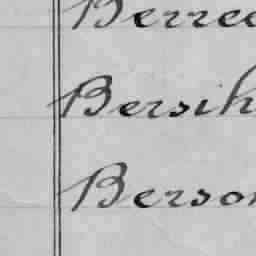 Berred
Bersih
Berson